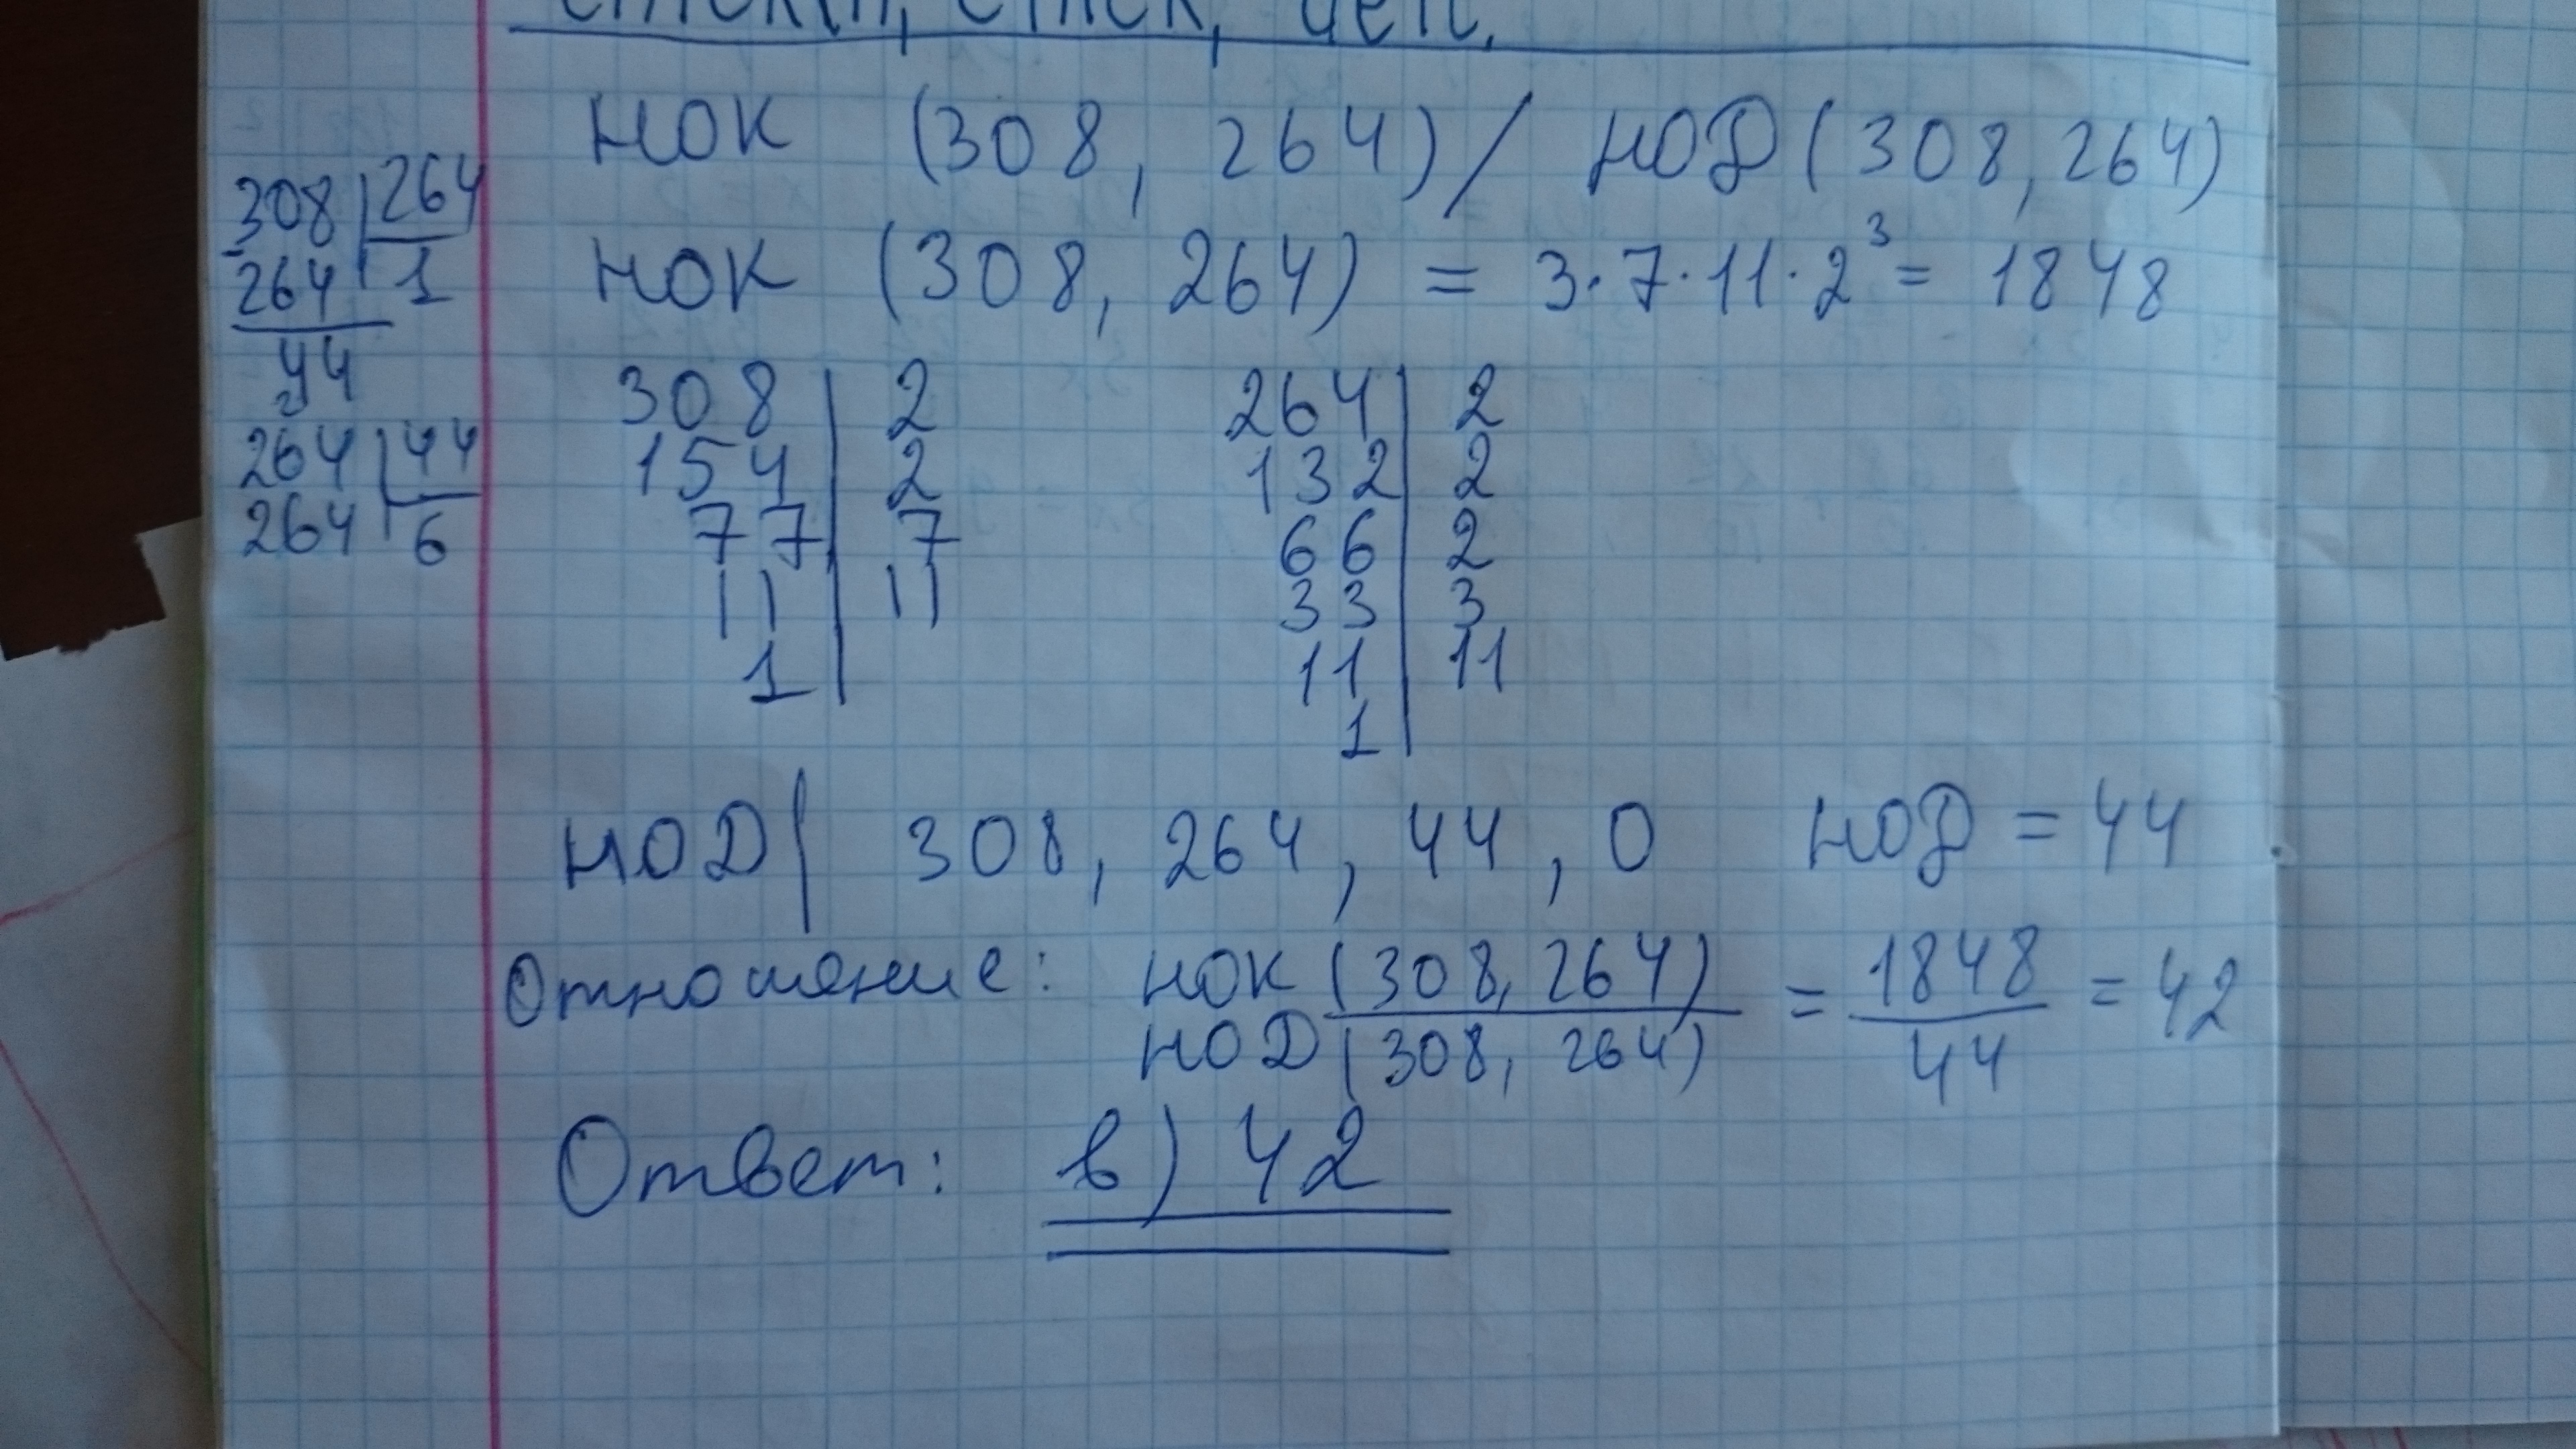 НОК (308, 264) / НОД (308, 264)
308 | 264
- 264 | 1
44
264 | 44
264 | 6
НОК (308, 264) = 3·7·11·2³ = 1848
308 | 2
154 | 2
77 | 7
11 | 11
1
264 | 2
132 | 2
66 | 2
33 | 3
11 | 11
1
НОД | 308, 264, 44, 0 НОД = 44
Отношение: НОК (308, 264) / НОД (308, 264) = 1848 / 44 = 42
Ответ: в) 42